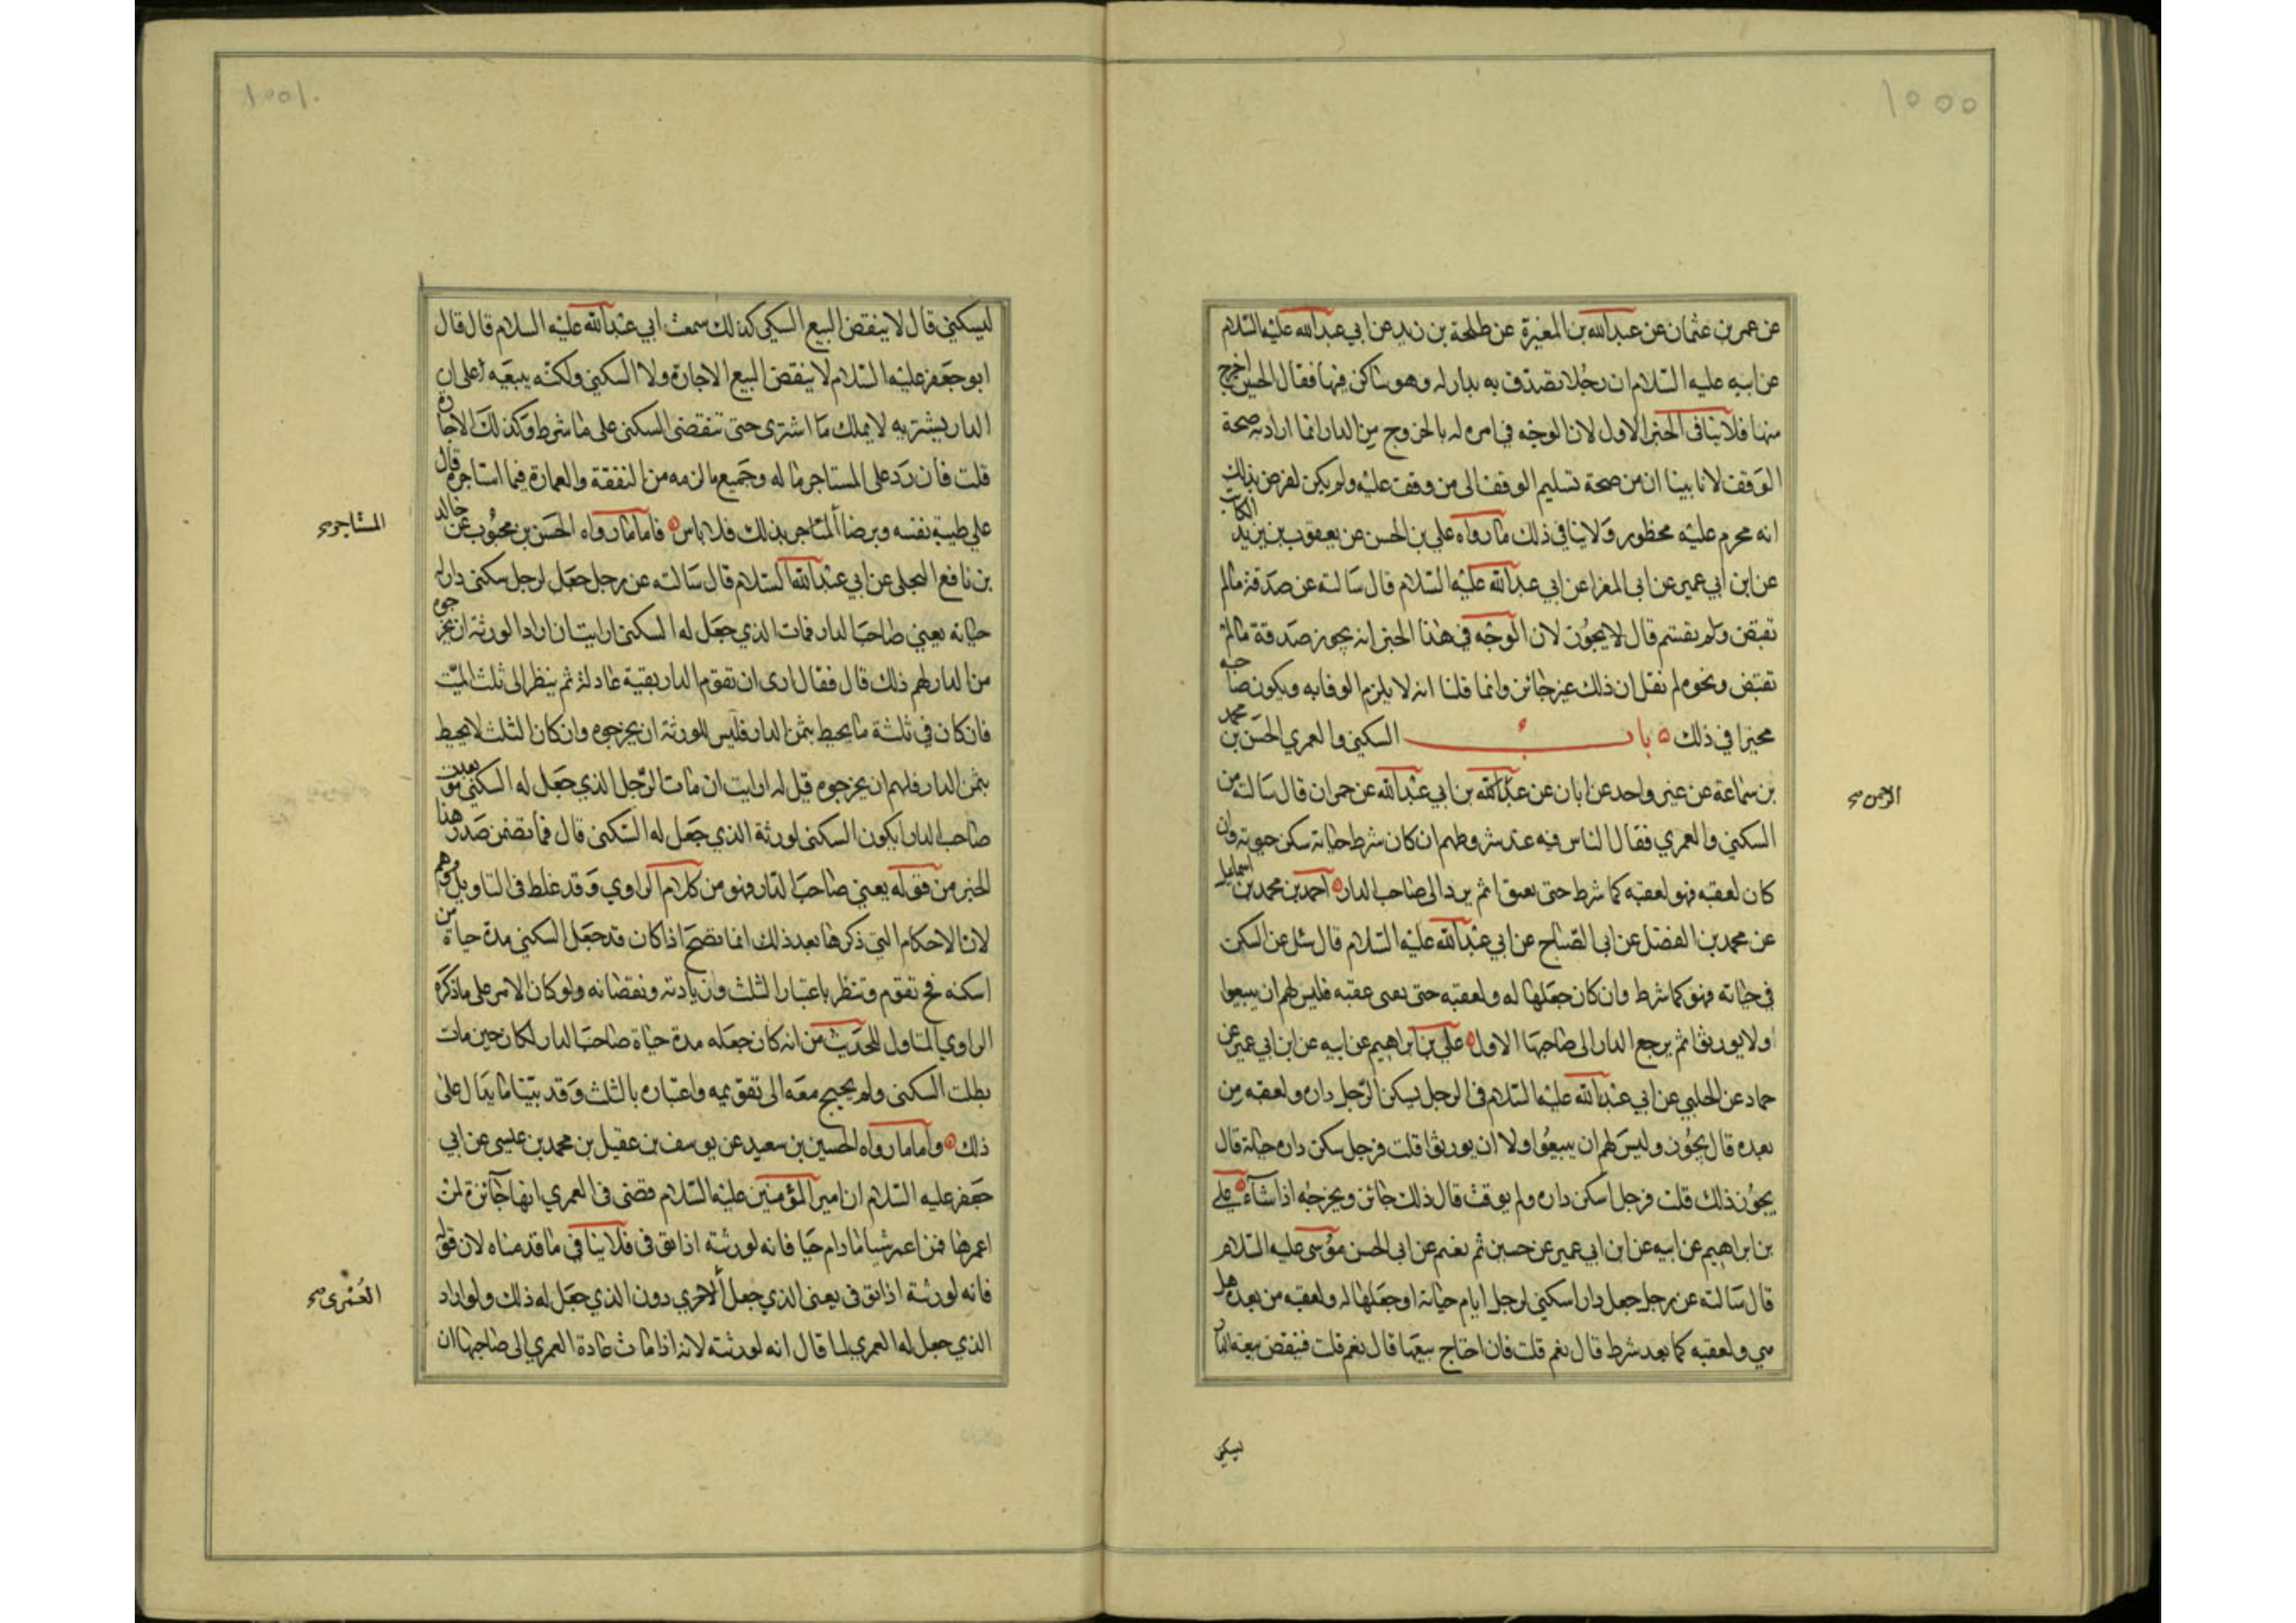 ١٠٠٠
عن عمر بن عثمان عن عبدالله بن المغيرة عن طلحة بن زيد عن ابي عبدالله عليه السلام
عن ابيه عليه السلام ان رجلا تصدق به بدار له وهو ساكن فيها فقال الحين اخرج
منها فلا ينافى الخبر الاول لان الوجه في امره له بالخروج من الدار انما اراد به صحة
الوقف لانا بينا ان من صحة تسليم الوقف الى من وقف عليه ولم يكن لغرض بذلك
انه محرم عليه محظور ولا ينافي ذلك ما رواه علي بن الحسن عن يعقوب بن يزيد الكاتب
عن ابن ابي عمير عن ابي المغرا عن ابي عبدالله عليه السلام قال سالته عن صدقة مالم
تقبض ولم يقسم قال لا يجوز لان الوجه في هذا الخبر انه يجوز صدقة مالم
تقبض ونحوه لم نقل ان ذلك غير جائز وانما قلنا انه لا يلزم الوفا به ويكون صاحبه
مخيرا في ذلك باب السكنى والعمري الحسن بن محمد
بن سماعة عن غير واحد عن ابان عن عبدالله بن ابي عبدالله عن حمران قال سالته عن
الرحمن صح
السكنى والعمري فقال الناس فيه عند شروطهم ان كان شرط حياته سكن حيوته وان
كان لعقبه فهو لعقبه كما شرط حتى يفنوا ثم يرد الى صاحب الدار احمد بن محمد بن اسماعيل
عن محمد بن الفضل عن ابي الصباح عن ابي عبدالله عليه السلام قال سئل عن السكنى
في حياته فهو كما شرط وان كان جعلها له ولعقبه حتى يفنى عقبه فليس لهم ان يبيعوا
اولا يورثوا ثم يرجع الدار الى صاحبها الاول علي بن ابراهيم عن ابيه عن ابن ابي عمير عن
حماد عن الحلبي عن ابي عبدالله عليه السلام في الرجل يسكن الرجل داره ولعقبه من
بعده قال يجوز وليس لهم ان يبيعوا ولا ان يورثوا قلت فرجل سكن داره حياته قال
يجوز ذلك قلت فرجل اسكن داره ولم يوقت قال ذلك جائز ويخرجه اذا شاء علي
بن ابراهيم عن ابيه عن ابن ابي عمير عن حسين ثم نعيم عن ابي الحسن موسى عليه السلام
قال سالته عن رجل جعل دارا سكنى لرجل ايام حياته او جعلها له ولعقبه من بعده هل
هي ولعقبه كما بعد شرط قال نعم قلت فان احتاج يبيعها قال نعم قلت فينقض بيعه الدار
ليسكني
١٠٠١
ليسكني قال لا ينقض البيع السكنى كذلك سمعت ابي عبدالله عليه السلام قال قال
ابو جعفر عليه السلام لا ينقض البيع الاجارة ولا السكنى ولكنه يبيعه على ان
الدار يشتريه لا يملك ما اشترى حتى تنقضى السكنى على ما شرط وكذلك الاجارة
قلت فان رد على المستاجر ما له وجميع ما لزمه من النفقة والعمارة فيما استاجره قال
على طيبة نفسه وبرضا المتاجر بذلك فلا باس فاما ما رواه الحسن بن محبوب عن خالد
المستاجر صح
بن نافع البجلى عن ابي عبدالله السلام قال سالته عن رجل جعل لرجل سكنى دار له
حياته يعني صاحب الدار فمات الذي جعل له السكنى ارايت ان اراد الورثة ان يخرجوه
من الدار لهم ذلك قال فقال ارى ان تقوم الدار بقيمة عادلة ثم ينظر الى ثلث الميت
فان كان في ثلثة ما يحيط بثمن الدار فليس للورثة ان يخرجوه وان كان الثلث لا يحيط
بثمن الدار فلهم ان يخرجوه قيل له ارايت ان مات الرجل الذي جعل له السكنى بعد موت
صاحب الدار ايكون السكنى لورثة الذي جعل له السكنى قال فما تضمن صدر هذا
الخبر من قوله يعني صاحب الدار فهو من كلام الراوي وقد غلط في التاويل ووهم
لان الاحكام التي ذكرها بعد ذلك انما تصح اذا كان قد جعل السكنى مدة حياة من
اسكنه فح تقوم وتنظر باعتبار الثلث وزيادته ونقصانه ولو كان الامر على ما ذكره
الراوي المتاول للحديث من انه كان جعله مدة حياة صاحب الدار لكان حين مات
بطلت السكنى ولم يحتج معه الى تقويمه واعتباره بالثلث وقد بينا ما يدل على
ذلك واما ما رواه الحسين بن سعيد عن يوسف بن عقيل بن محمد بن عيسى عن ابي
جعفر عليه السلام ان امير المؤمنين عليه السلام قضى في العمري انها جائزة لمن
اعمرها فمن اعمر شيا ما دام حيا فانه لورثته اذا توفى فلا ينافي ما قدمناه لان قوله
فانه لورثة اذا توفى يعنى الذي جعل الاخرى دون الذي جعل له ذلك ولو اراد
العمرى صح
الذي جعل له العمري لما قال انه لورثته لانه اذا مات عادة العمري الى صاحبها ان